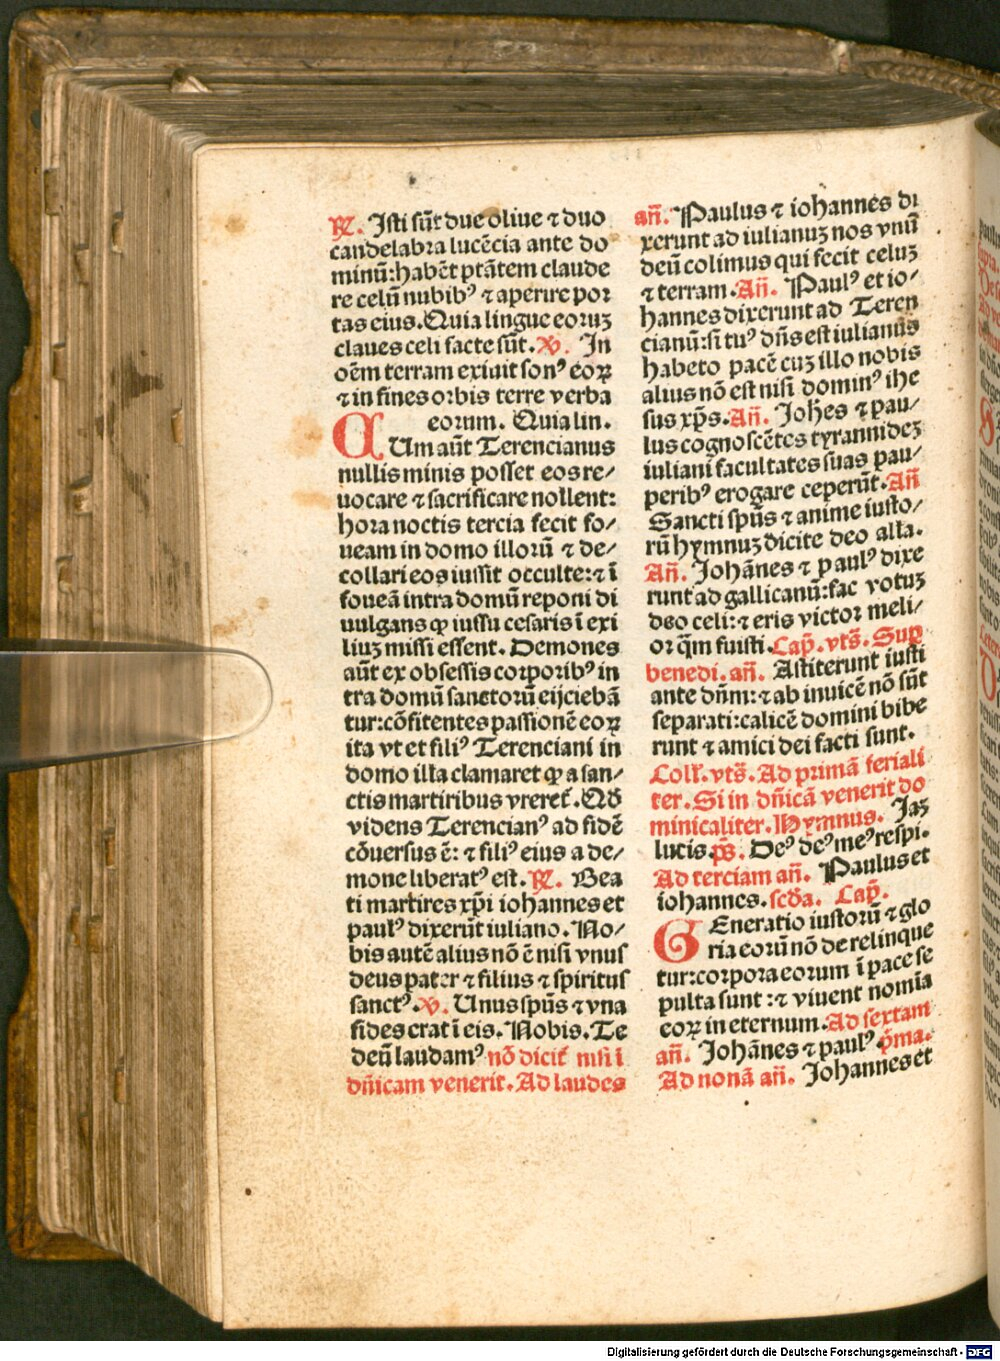 ℟. Isti sūt due oliue ⁊ duo
candelabra lucēcia ante do
minū: habēt ptātem claude
re celū nubibꝰ ⁊ aperire por
tas eius. Quia lingue eoruꝫ
claues celi facte sūt. ℣. In
oēm terram exiuit sonꝰ eoꝝ
⁊ in fines orbis terre verba
eorum. Quia lin.
CUm aūt Terencianus
nullis minis posset eos re/
uocare ⁊ sacrificare nollent:
hora noctis tercia fecit fo/
ueam in domo illorū ⁊ de/
collari eos iussit occulte: ⁊ ī
foueā intra domū reponi di
uulgans ꝙ iussu cesaris ī exi
liuꝫ missi essent. Demones
aūt ex obsessis corporibꝰ in
tra domū sanctorū eijciebā
tur: cōfitentes passionē eoꝝ
ita vt et filiꝰ Terenciani in
domo illa clamaret ꝙ a san/
ctis martiribus vreret᷑. Qd̄
videns Terencianꝰ ad fidē
cōuersus ē: ⁊ filiꝰ eius a de/
mone liberatꝰ est. ℟. Bea
ti martires xp̄i iohannes et
paulꝰ dixerūt iuliano. No/
bis autē alius nō ē nisi vnus
deus pater ⁊ filius ⁊ spiritus
sanctꝰ. ℣. Unus spūs ⁊ vna
fides erat ī eis. Nobis. Te
deū laudamꝰ nō dicit᷑ nisi ī
dn̄icam venerit. Ad laudes
an̄. Paulus ⁊ iohannes di
xerunt ad iulianuꝫ nos vnū
deū colimus qui fecit celuꝫ
⁊ terram. An̄. Paulꝰ et io/
hannes dixerunt ad Teren
cianū: si tuꝰ dn̄s est iulianus
habeto pacē cuꝫ illo nobis
alius nō est nisi dominꝰ ihe
sus xp̄s. An̄. Joh̄es ⁊ pau/
lus cognoscētes tyrannideꝫ
iuliani facultates suas pau/
peribꝰ erogare ceperūt. An̄
Sancti spūs ⁊ anime iusto/
rū hymnuꝫ dicite deo alla.
An̄. Johānes ⁊ paulꝰ dixe
runt ad gallicanū: fac votuꝫ
deo celi: ⁊ eris victor meli/
or qm̄ fuisti. Cap̄. vts̄. Sup̄
benedi. an̄. Astiterunt iusti
ante dn̄m: ⁊ ab inuicē nō sūt
separati: calicē domini bibe
runt ⁊ amici dei facti sunt.
Coll̄. vts̄. Ad primā feriali
ter. Si in dn̄icā venerit do
minicaliter. Hymnus. Jaꝫ
lucis. ps̄. Deꝰ deꝰ meꝰ respi.
Ad terciam an̄. Paulus et
iohannes. scd̄a. Cap̄.
GEneratio iustorū ⁊ glo
ria eorū nō derelinque
tur: corpora eorum ī pace se
pulta sunt: ⁊ viuent nomīa
eoꝝ in eternum. Ad sextam
an̄. Johānes ⁊ paulꝰ. p̄ma.
Ad nonā an̄. Johannes et
Digitalisierung gefördert durch die Deutsche Forschungsgemeinschaft - DFG